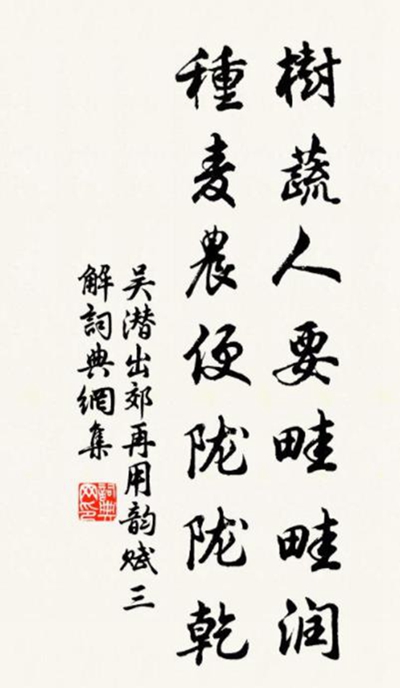 樹蔬人要畦畦润
種麦農便陇陇乾
吴潜出郊再用韵赋三
解詞典網集
詞典网印